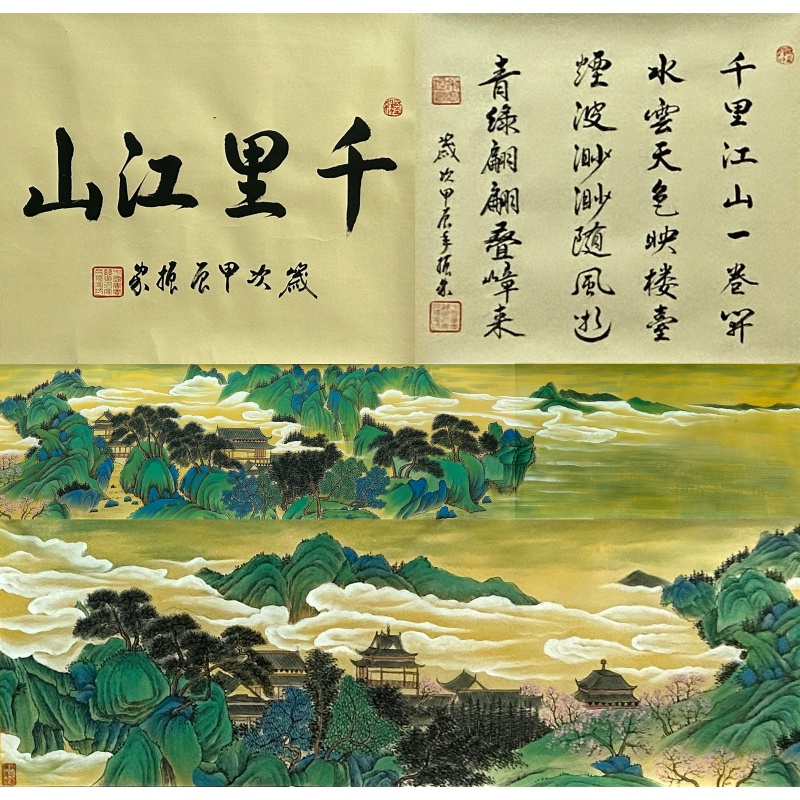 千里江山
歲次甲辰振家
千里江山一卷開
水雲天色映楼臺
煙波渺渺随風逝
青绿翩翩叠嶂来
歲次甲辰年振家